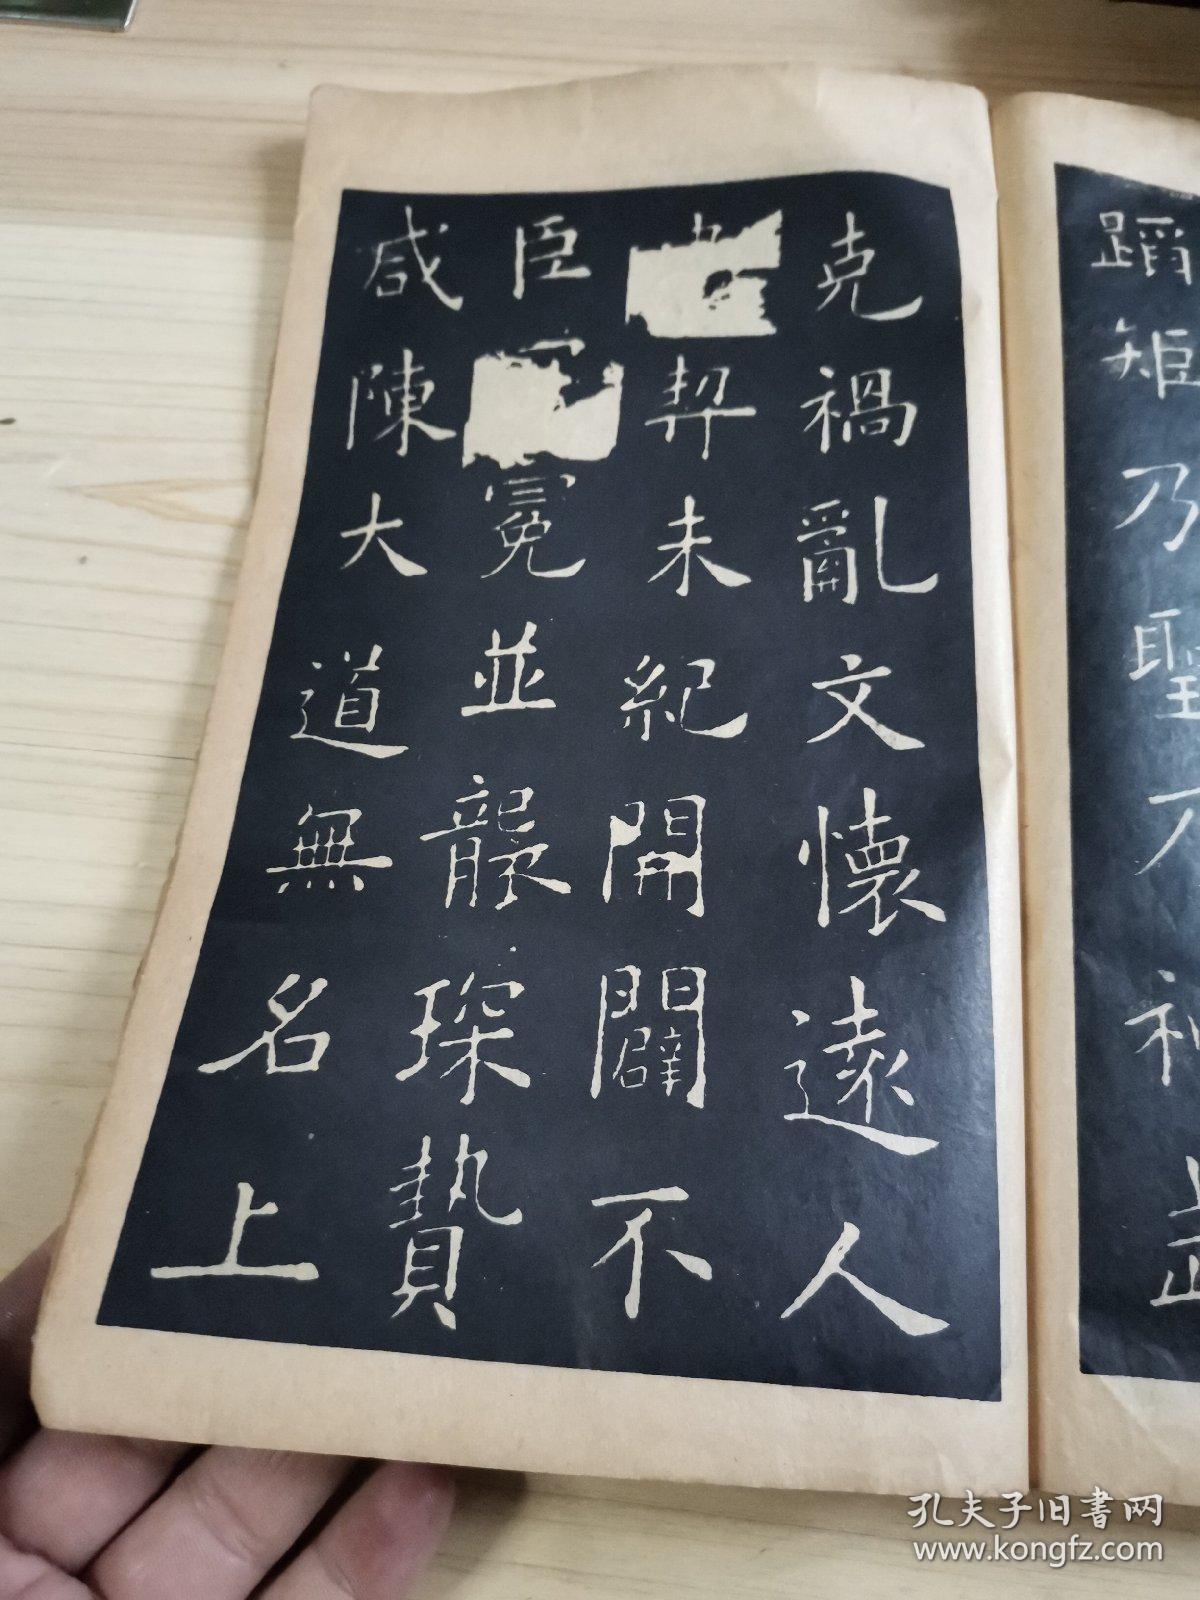 蹈矩乃聖乃神武
克禍亂文懷遠人
契未紀開闢不
臣冕並襲琛贄
咸陳大道無名上
孔夫子旧书网
www.kongfz.com